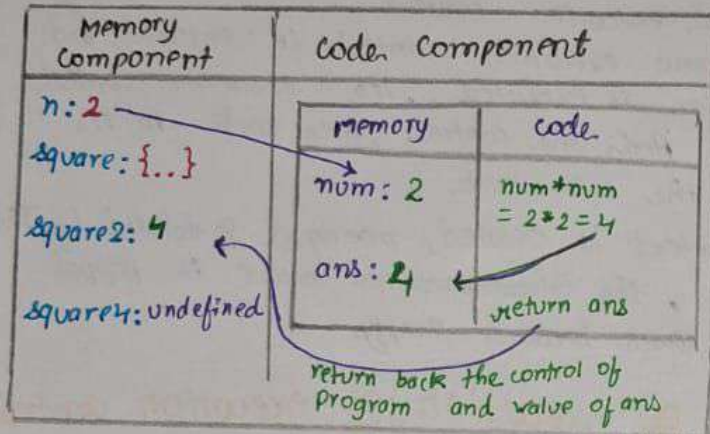 Memory
Component
code Component
n: 2
square: {..}
square2: 4
square4: undefined
memory
code
num: 2
num*num
= 2*2=4
ans: 4
return ans
return back the control of
Program and value of ans